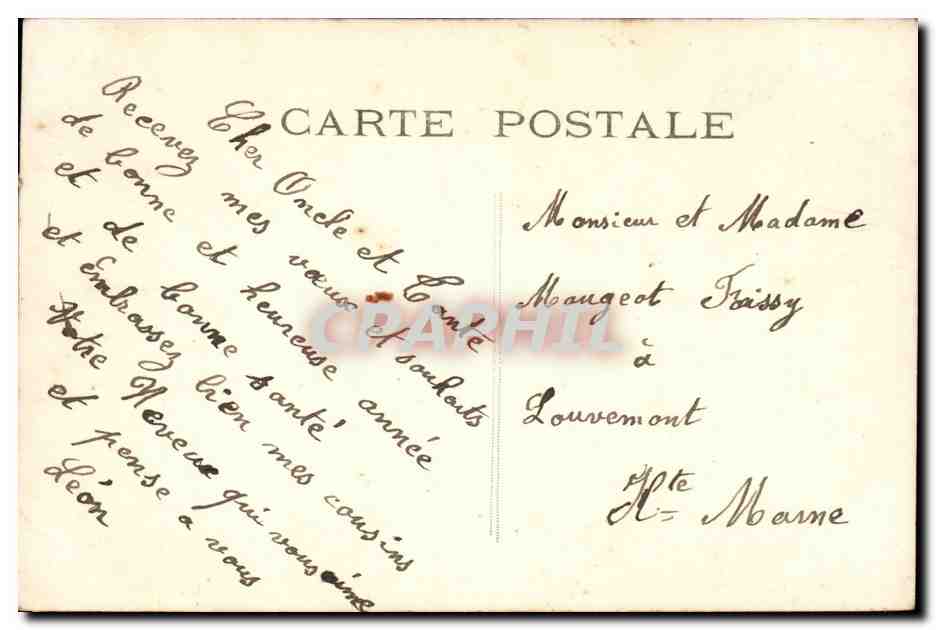 CARTE POSTALE
Cher Oncle et Tante
Recevez mes vœux et souhaits
de bonne et heureuse année
et de bonne santé
et embrassez bien mes cousins
Votre Neveux qui vous aime
et pense a vous
Léon
Monsieur et Madame
Mougeot Frissy
à
Louvemont
Hte Marne
CPAPHIL